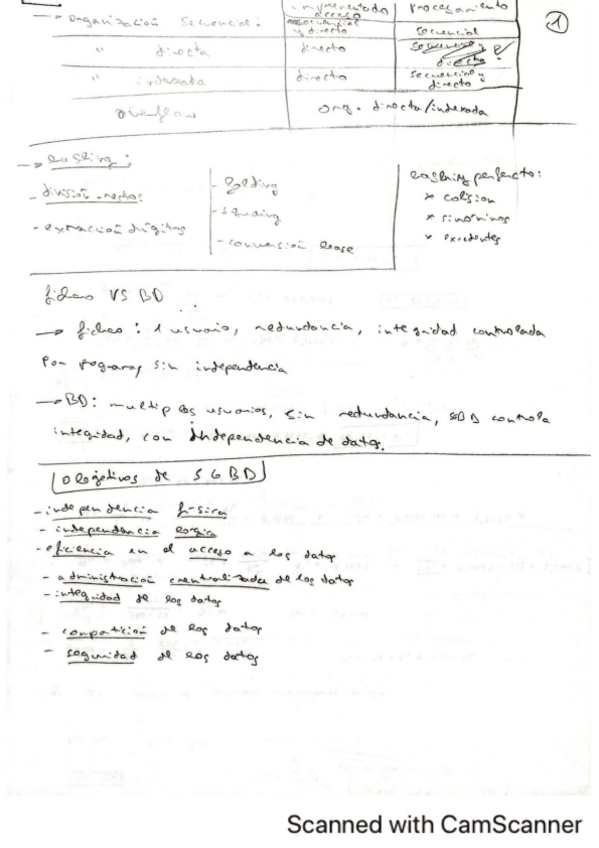 implementado procesamiento
acceso
1
→ organización secuencial: secuencial y directo secuencial
" directa directo secuencial y directo ?
" indexada directo secuencial y directo
overflow org. directa/indexada
→ hashing:
- división resto:
- extracción dígitos
- folding
- squaring
- conversión base
hashing perfecto:
x colision
x sinónimos
x excedentes
fichero VS BD
→ fichero: 1 usuario, redundancia, integridad controlada
por programa, sin independencia
→ BD: multiples usuarios, sin redundancia, SGBD controla
integridad, con independencia de datos.
Objetivos de SGBD
- independencia física
- independencia lógica
- eficiencia en el acceso a los datos
- administración centralizada de los datos
- integridad de los datos
- compartición de los datos
- seguridad de los datos
Scanned with CamScanner